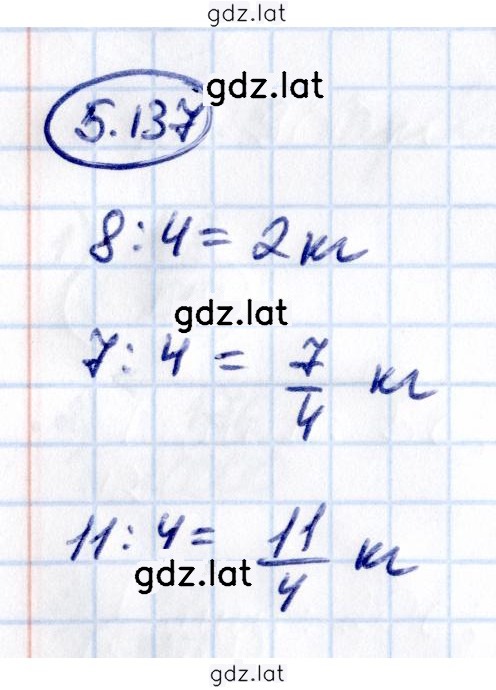 gdz.lat
gdz.lat
5.137
8 : 4 = 2 кг
gdz.lat
7 : 4 = 7/4 кг
11 : 4 = 11/4 кг
gdz.lat
gdz.lat